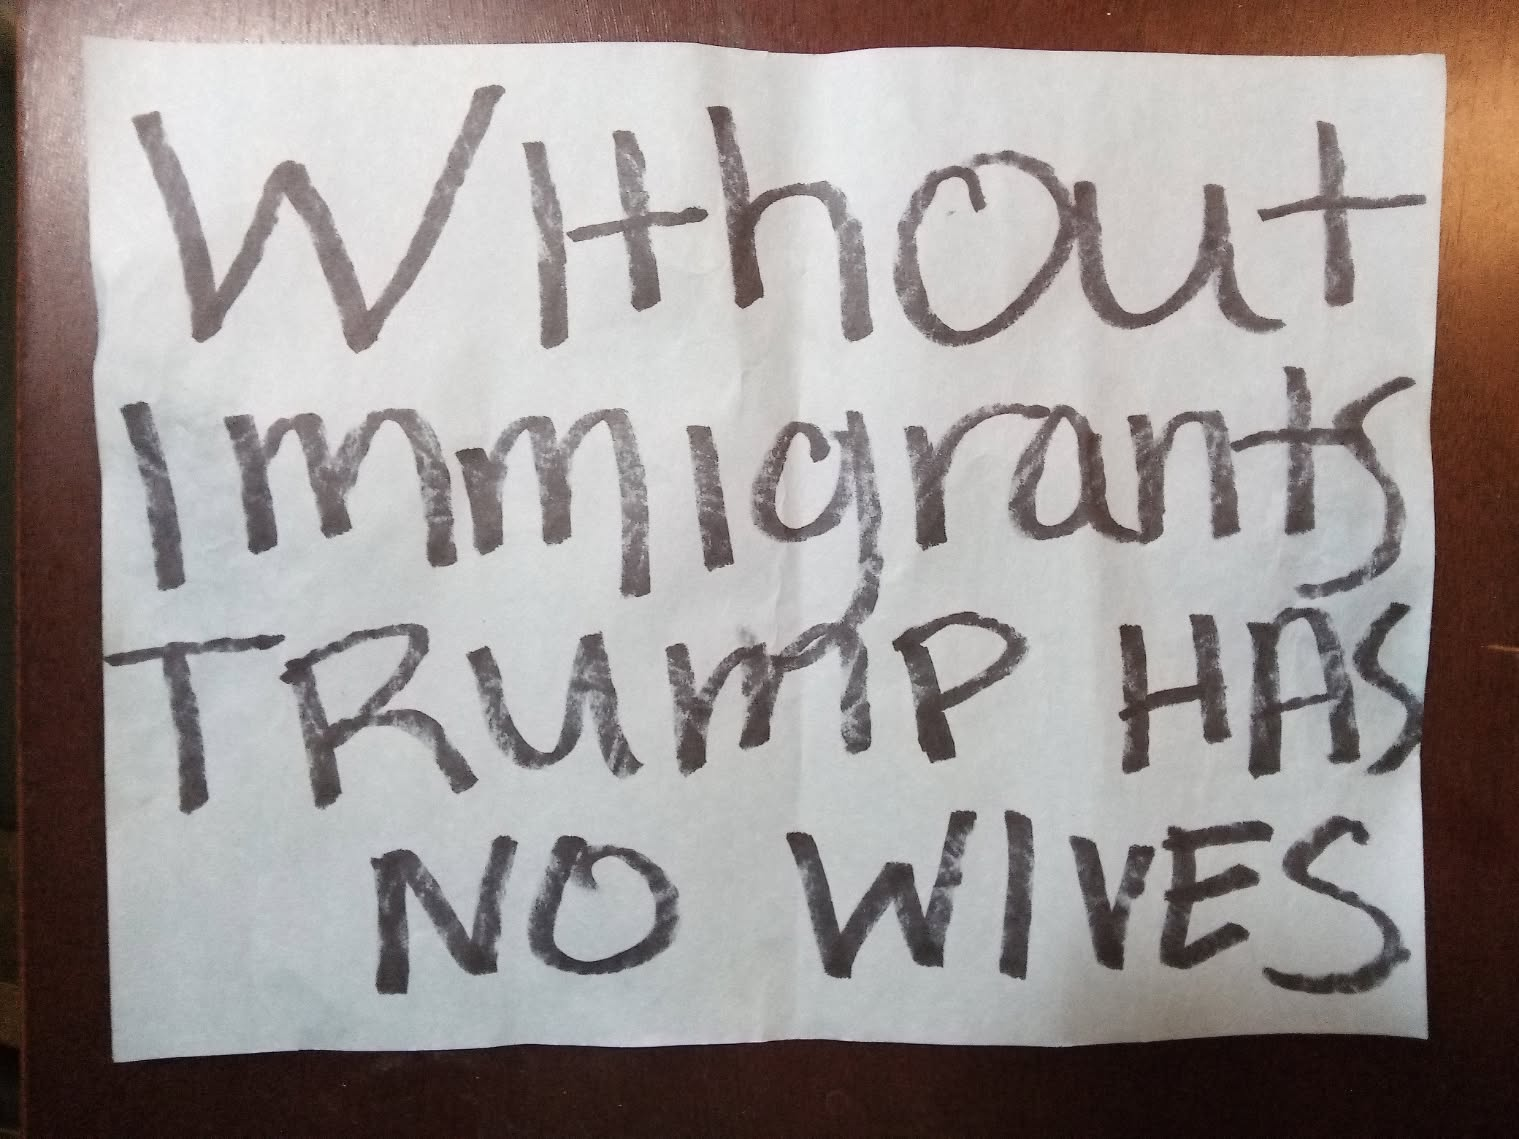 Without
Immigrants
TRUmP HAS
NO WIVES